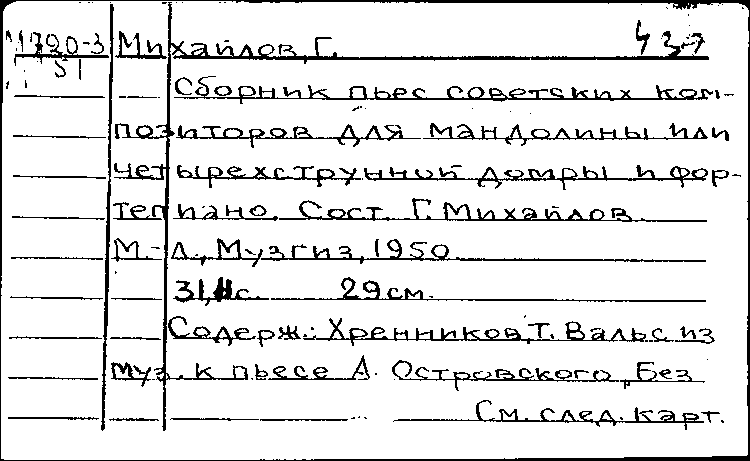 М1720-3 Михайлов, Г. 437
51
Сборник пьес советских ком-
позиторов для мандолины или
четырехструнной домры и фор-
тепиано. Сост. Г. Михайлов.
М.-Л., Музгиз, 1950.
31, с. 29 см.
Содерж.: Хренников, Т. Вальс из
муз. к пьесе А. Островского „Без
См. след. карт.